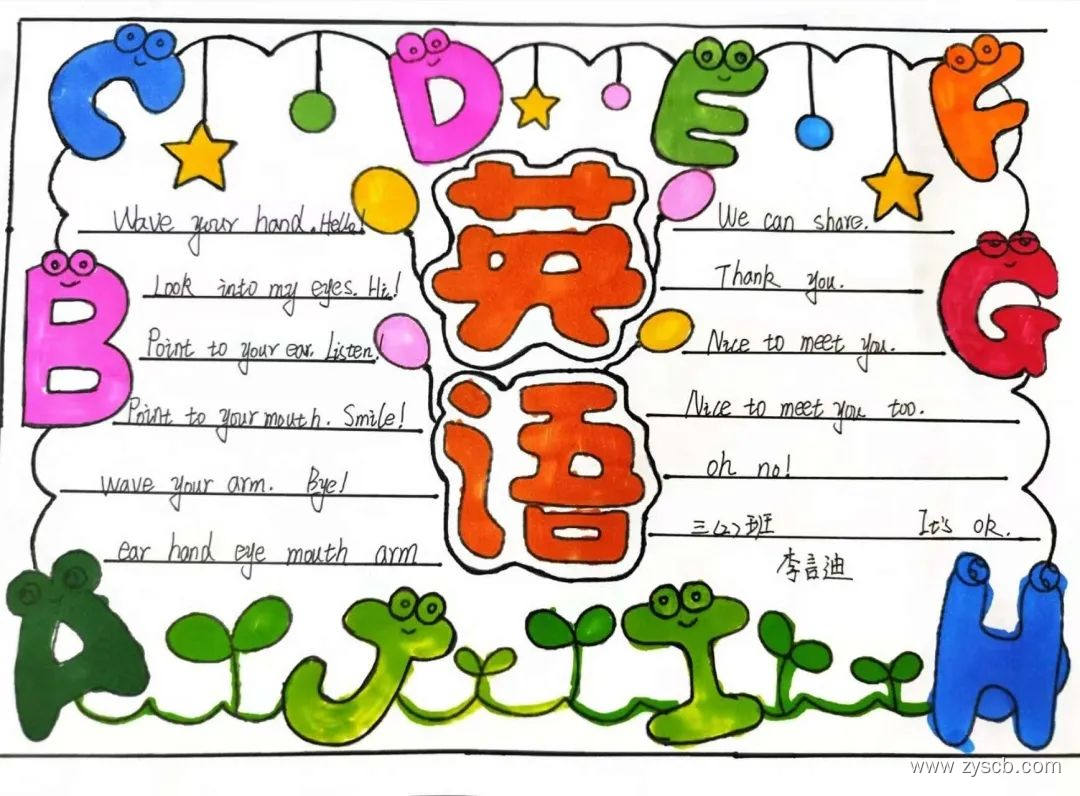 C D E F
英语
Wave your hand. Hello!
Look into my eyes. Hi!
Point to your ear. Listen!
Point to your mouth. Smile!
wave your arm. Bye!
ear hand eye mouth arm
We can share.
Thank you.
Nice to meet you.
Nice to meet you too.
oh no!
三(2)班 It's ok.
李言迪
B
G
A J I H
www.zyscb.com